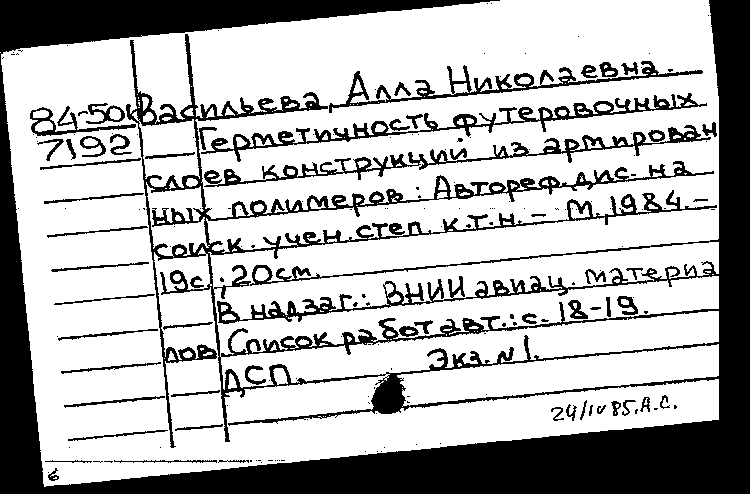 84-50к Васильева, Алла Николаевна.
7192 Герметичность футеровочных
слоев конструкций из армирован
ных полимеров: Автореф. дис. на
соиск. учен. степ. к.т.н. – М., 1984. –
19с.; 20см.
В надзаг.: ВНИИ авиац. материа
лов. Список работ авт.: с. 18-19.
ДСП. Экз. N1.
24/IV 85. А.С.
6